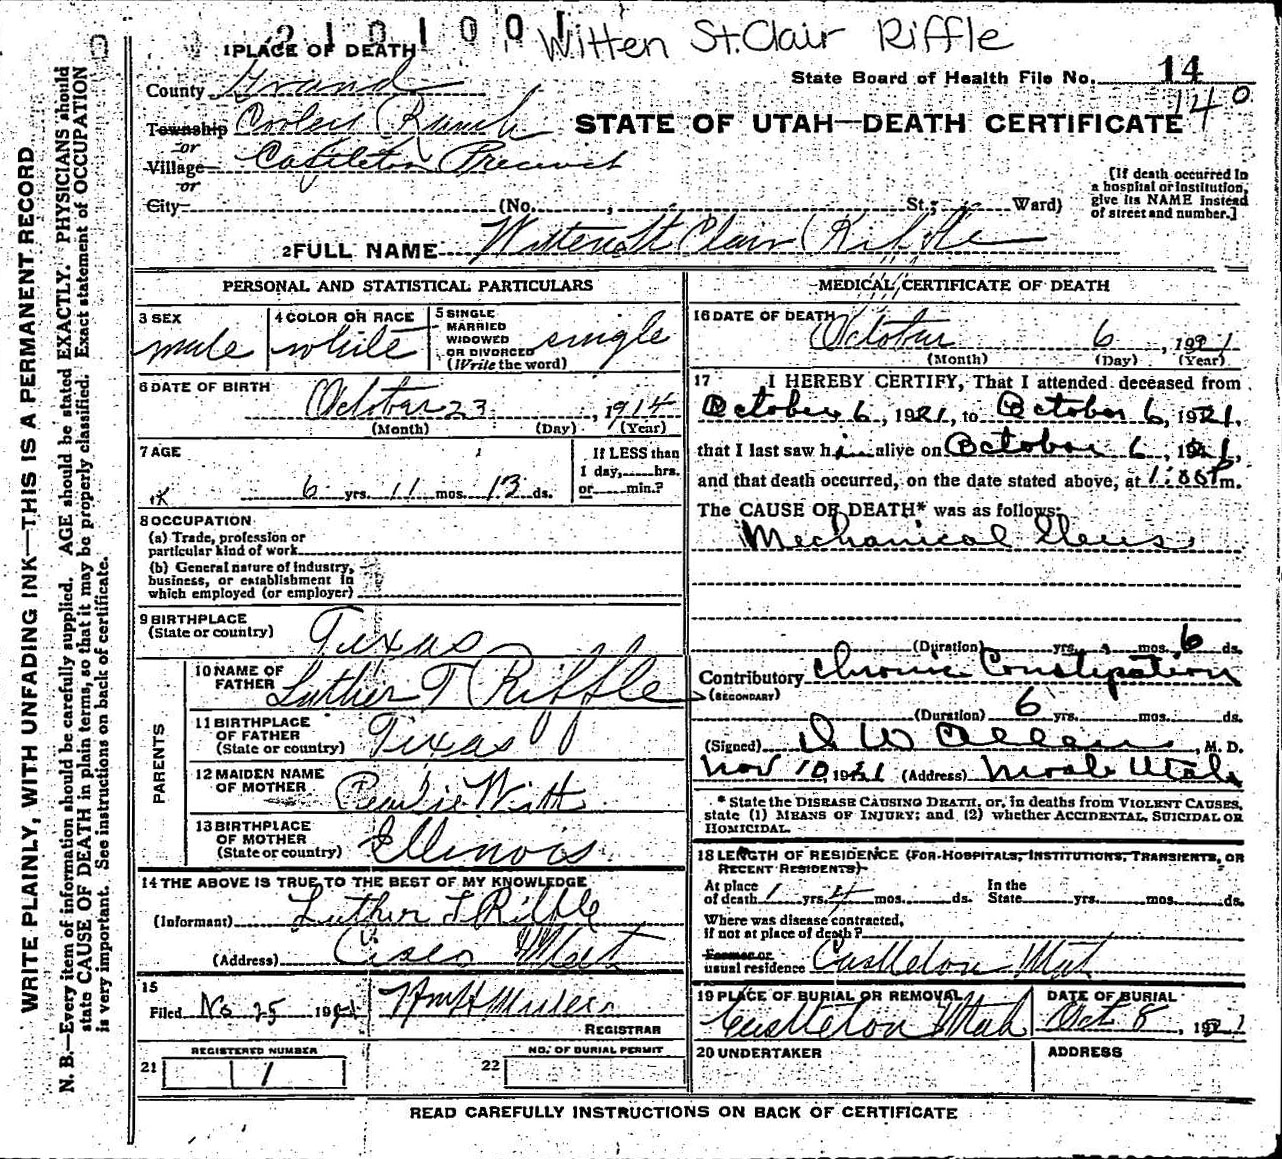 2 1 0 1 0 0 1
Witten St. Clair Riffle
1 PLACE OF DEATH
State Board of Health File No. 14
140
County Grand
Township Cooley Ranch
or
Village Castleton Precinct
or
City (No. , St.; Ward)
STATE OF UTAH—DEATH CERTIFICATE
[If death occurred in
a hospital or institution,
give its NAME instead
of street and number.]
2 FULL NAME Witten St Clair Riffle
PERSONAL AND STATISTICAL PARTICULARS
3 SEX
male
4 COLOR OR RACE
white
5 SINGLE
MARRIED
WIDOWED
OR DIVORCED
(Write the word)
single
6 DATE OF BIRTH
October 23, 1914
(Month) (Day) (Year)
7 AGE
6 yrs. 11 mos. 13 ds.
If LESS than
1 day, hrs.
or min.?
8 OCCUPATION
(a) Trade, profession or
particular kind of work
(b) General nature of industry,
business, or establishment in
which employed (or employer)
9 BIRTHPLACE
(State or country) Texas
PARENTS
10 NAME OF
FATHER Luther T Riffle
11 BIRTHPLACE
OF FATHER
(State or country) Texas
12 MAIDEN NAME
OF MOTHER Pearlie Witt
13 BIRTHPLACE
OF MOTHER
(State or country) Illinois
14 THE ABOVE IS TRUE TO THE BEST OF MY KNOWLEDGE
(Informant) Luther T Riffle
(Address) Cisco Utah
15
Filed No 25 1921
REGISTRAR
REGISTERED NUMBER
21 1
NO. OF BURIAL PERMIT
22
MEDICAL CERTIFICATE OF DEATH
16 DATE OF DEATH
October 6, 1921
(Month) (Day) (Year)
17 I HEREBY CERTIFY, That I attended deceased from
October 6, 1921, to October 6, 1921.
that I last saw him alive on October 6, 1921,
and that death occurred, on the date stated above, at 1:00 P m.
The CAUSE OF DEATH* was as follows:
Mechanical Ileus
(Duration) yrs. mos. 6 ds.
Contributory Chronic Constipation
(SECONDARY)
(Duration) 6 yrs. mos. ds.
(Signed) I W Allen, M. D.
Nov 10, 1921 (Address) Moab Utah
* State the DISEASE CAUSING DEATH, or, in deaths from VIOLENT CAUSES,
state (1) MEANS OF INJURY; and (2) whether ACCIDENTAL, SUICIDAL OR
HOMICIDAL.
18 LENGTH OF RESIDENCE (FOR HOSPITALS, INSTITUTIONS, TRANSIENTS, OR
RECENT RESIDENTS)
At place
of death 1 yrs. 4 mos. ds.
In the
State yrs. mos. ds.
Where was disease contracted,
if not at place of death?
Former or
usual residence Castleton Utah
19 PLACE OF BURIAL OR REMOVAL
Castleton Utah
DATE OF BURIAL
Oct 8, 1921
20 UNDERTAKER
ADDRESS
READ CAREFULLY INSTRUCTIONS ON BACK OF CERTIFICATE
WRITE PLAINLY, WITH UNFADING INK—THIS IS A PERMANENT RECORD
N. B.—Every item of information should be carefully supplied. AGE should be stated EXACTLY. PHYSICIANS should
state CAUSE OF DEATH in plain terms, so that it may be properly classified. Exact statement of OCCUPATION
is very important. See instructions on back of certificate.